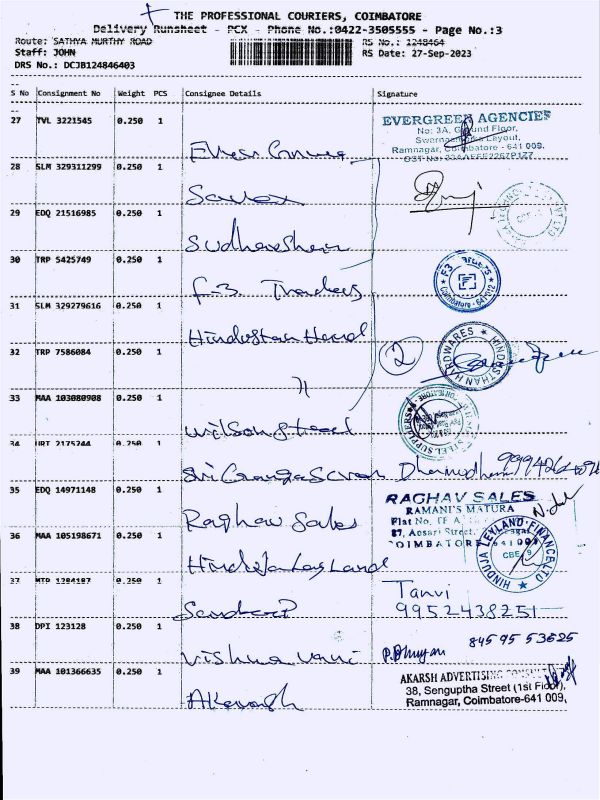 THE PROFESSIONAL COURIERS, COIMBATORE
Delivery Runsheet - PCX - Phone No.:0422-3505555 - Page No.:3
Route: SATHYA MURTHY ROAD RS No.: 1248464
Staff: JOHN RS Date: 27-Sep-2023
DRS No.: DCJB124846403
S No Consignment No Weight PCS Consignee Details Signature
27 TVL 3221545 0.250 1
EVERGREEN AGENCIES
No: 3A, Ground Floor,
Ramnagar, Coimbatore - 641 009.
28 SLM 329311299 0.250 1
Savex
29 EDQ 21516985 0.250 1
Sudharshan
30 TRP 5425749 0.250 1
F-3 Traders
Coimbatore - 641 012
31 SLM 329279616 0.250 1
Hindustan Hard
32 TRP 7586084 0.250 1
"
2
HINDUSTHAN HARDWARES
33 MAA 103080908 0.250 1
Wilson Steel
STEEL SUPPLIERS
34 URT 2175244 0.250 1
Sri Ganga Saran
35 EDQ 14971148 0.250 1
Raghav Sales
RAGHAV SALES
RAMANI'S MATURA
Flat No.
87, Ansari Street,
COIMBATORE
36 MAA 105198671 0.250 1
HINDUJA LEYLAND FINANCE LTD
CBE 9
37 MTP 1284187 0.250 1
Tanvi
9952438251
38 DPI 123128 0.250 1
Vishnu Vani
84595 53625
39 MAA 101366635 0.250 1
Akarsh
AKARSH ADVERTISING CONSULT
38, Senguptha Street (1st Floor),
Ramnagar, Coimbatore-641 009,